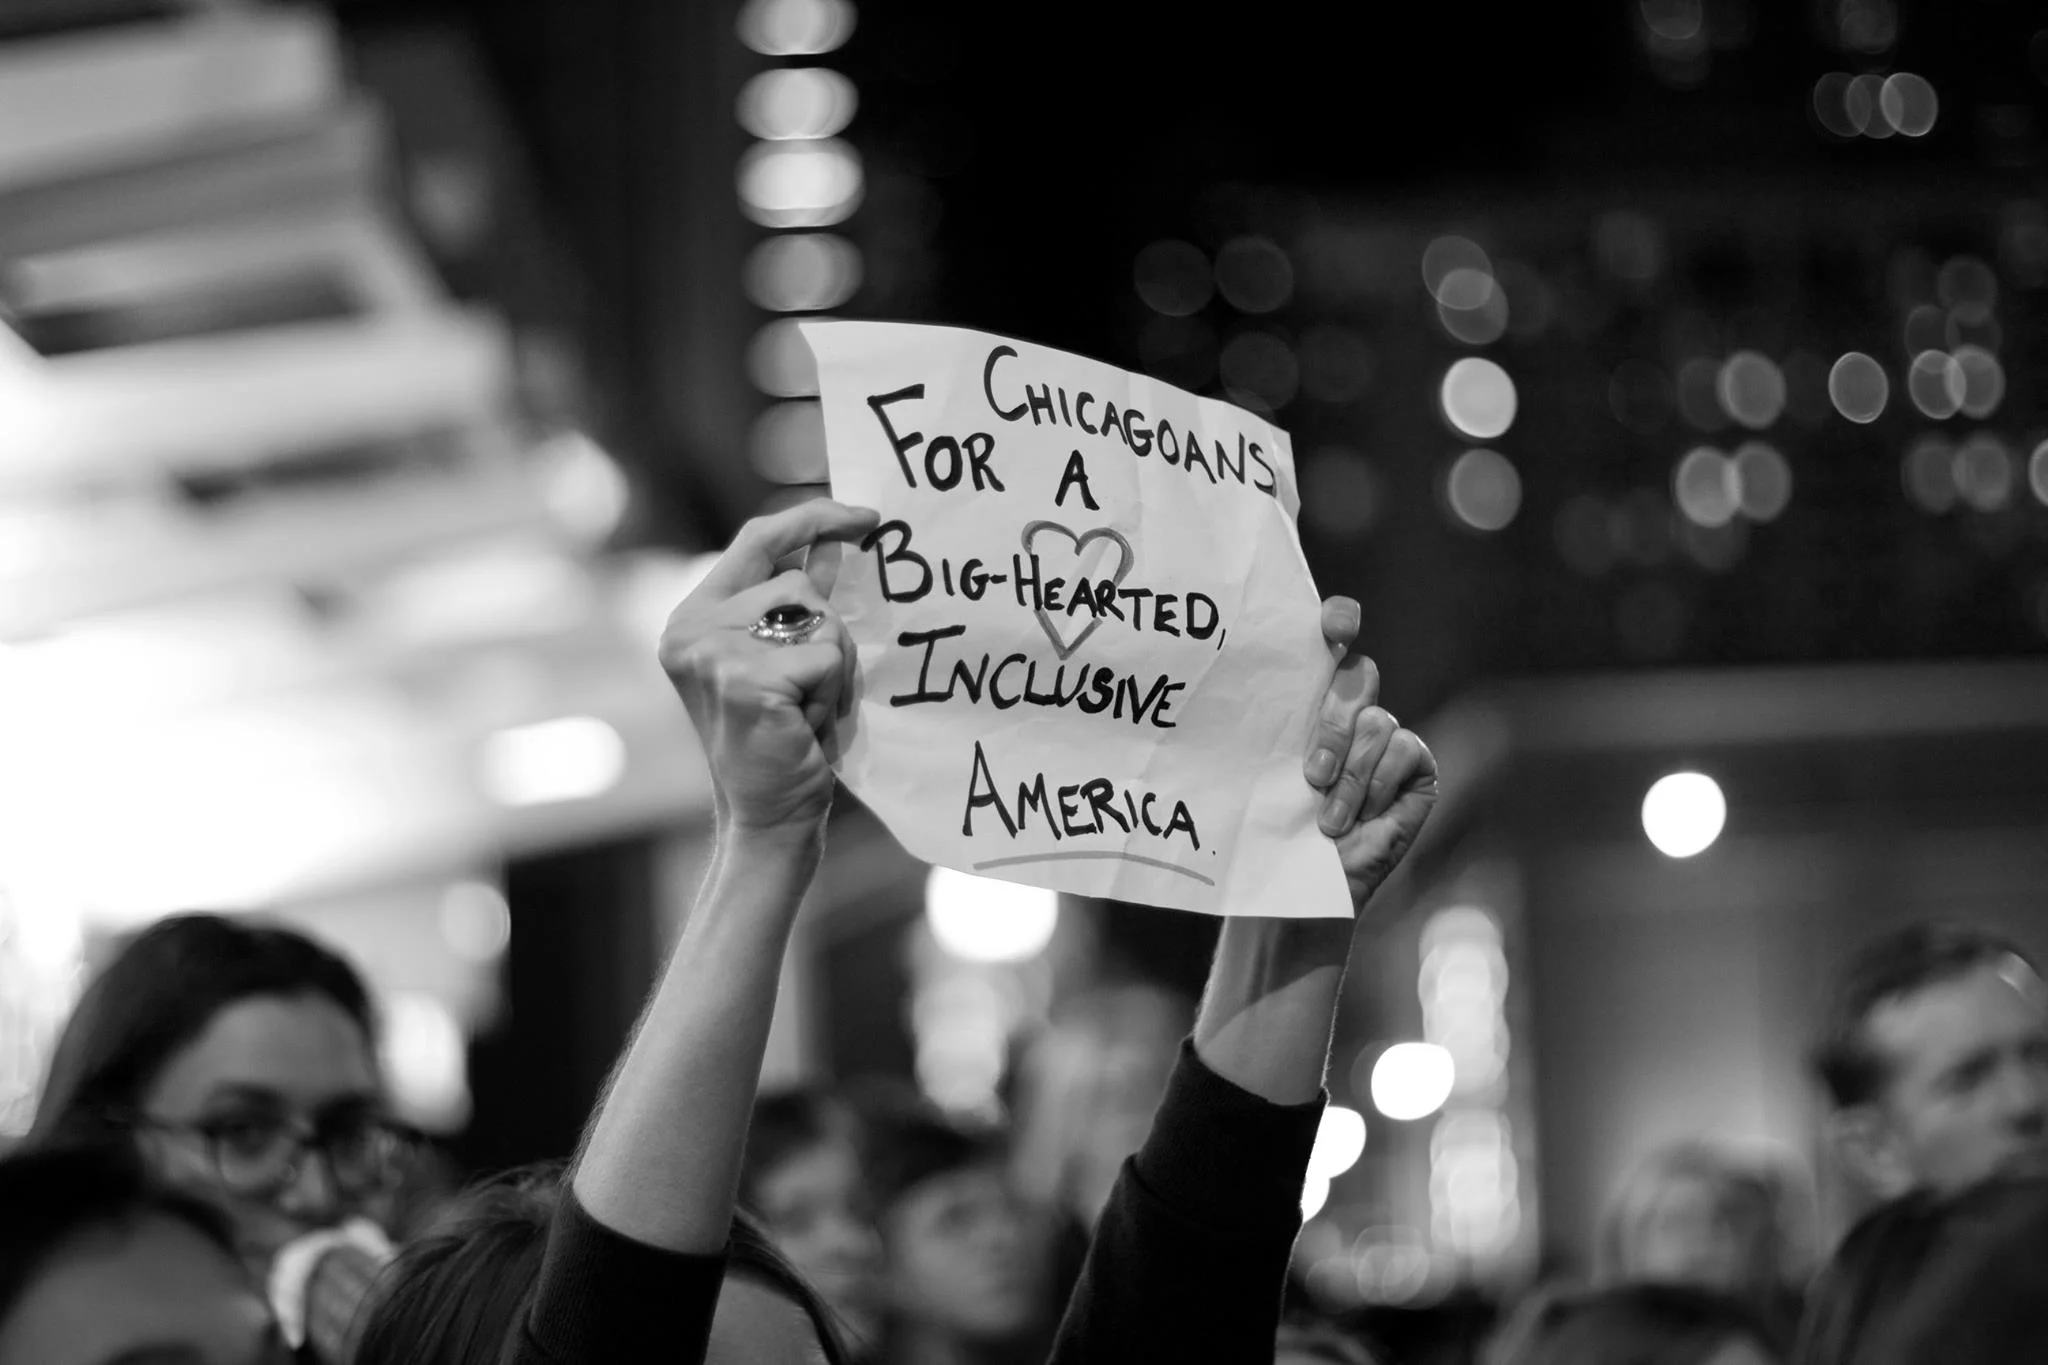 CHICAGOANS
FOR A
BIG-HEARTED,
INCLUSIVE
AMERICA.